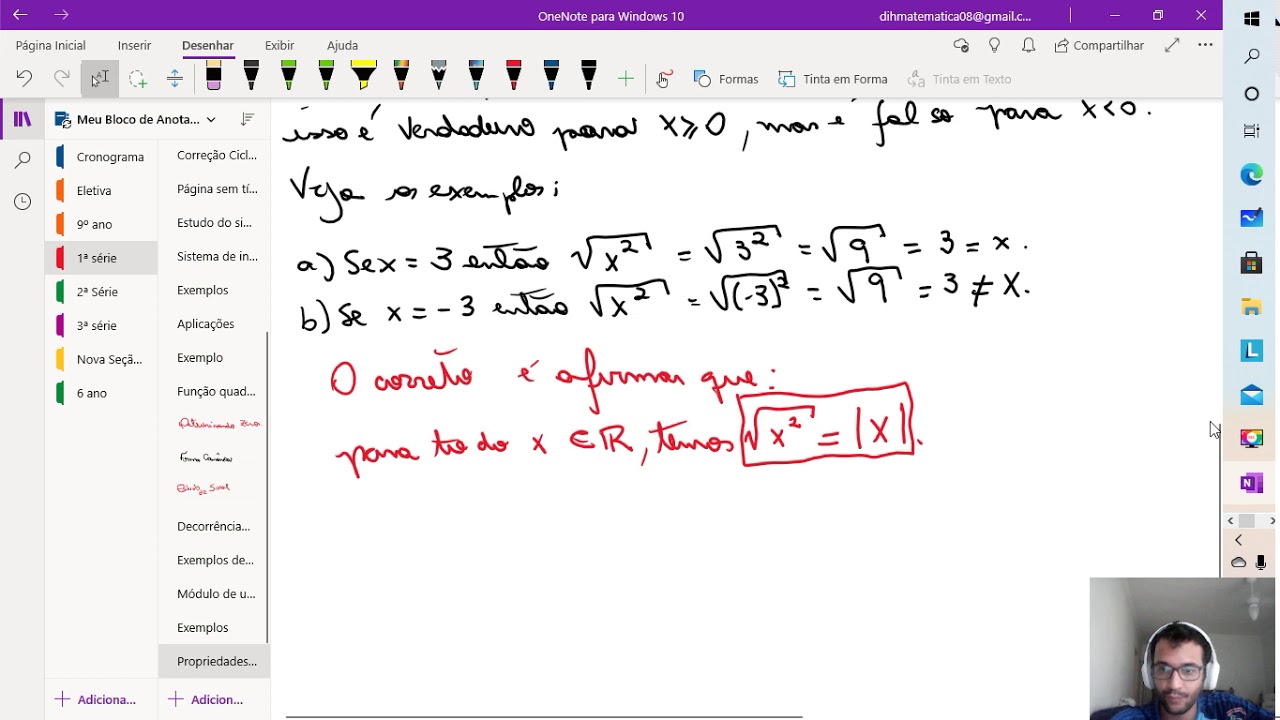 OneNote para Windows 10
dihmatematica08@gmail.c...
Página Inicial
Inserir
Desenhar
Exibir
Ajuda
Compartilhar
Formas
Tinta em Forma
Tinta em Texto
Meu Bloco de Anota...
Cronograma
Eletiva
9º ano
1ª série
2ª Série
3ª série
Nova Seçã...
6 ano
Adiciona...
Correção Cicl...
Página sem tí...
Estudo do si...
Sistema de in...
Exemplos
Aplicações
Exemplo
Função quad...
Determinando Zeros
Decorrência...
Exemplos de...
Módulo de u...
Exemplos
Propriedades...
Adicion...
isso é verdadeiro para x ≥ 0, mas é falso para x < 0.
Veja os exemplos:
a) Se x = 3 então √x² = √3² = √9 = 3 = x.
b) Se x = -3 então √x² = √(-3)² = √9 = 3 ≠ X.
O correto é afirmar que:
para todo x ∈ ℝ, temos √x² = |X|.